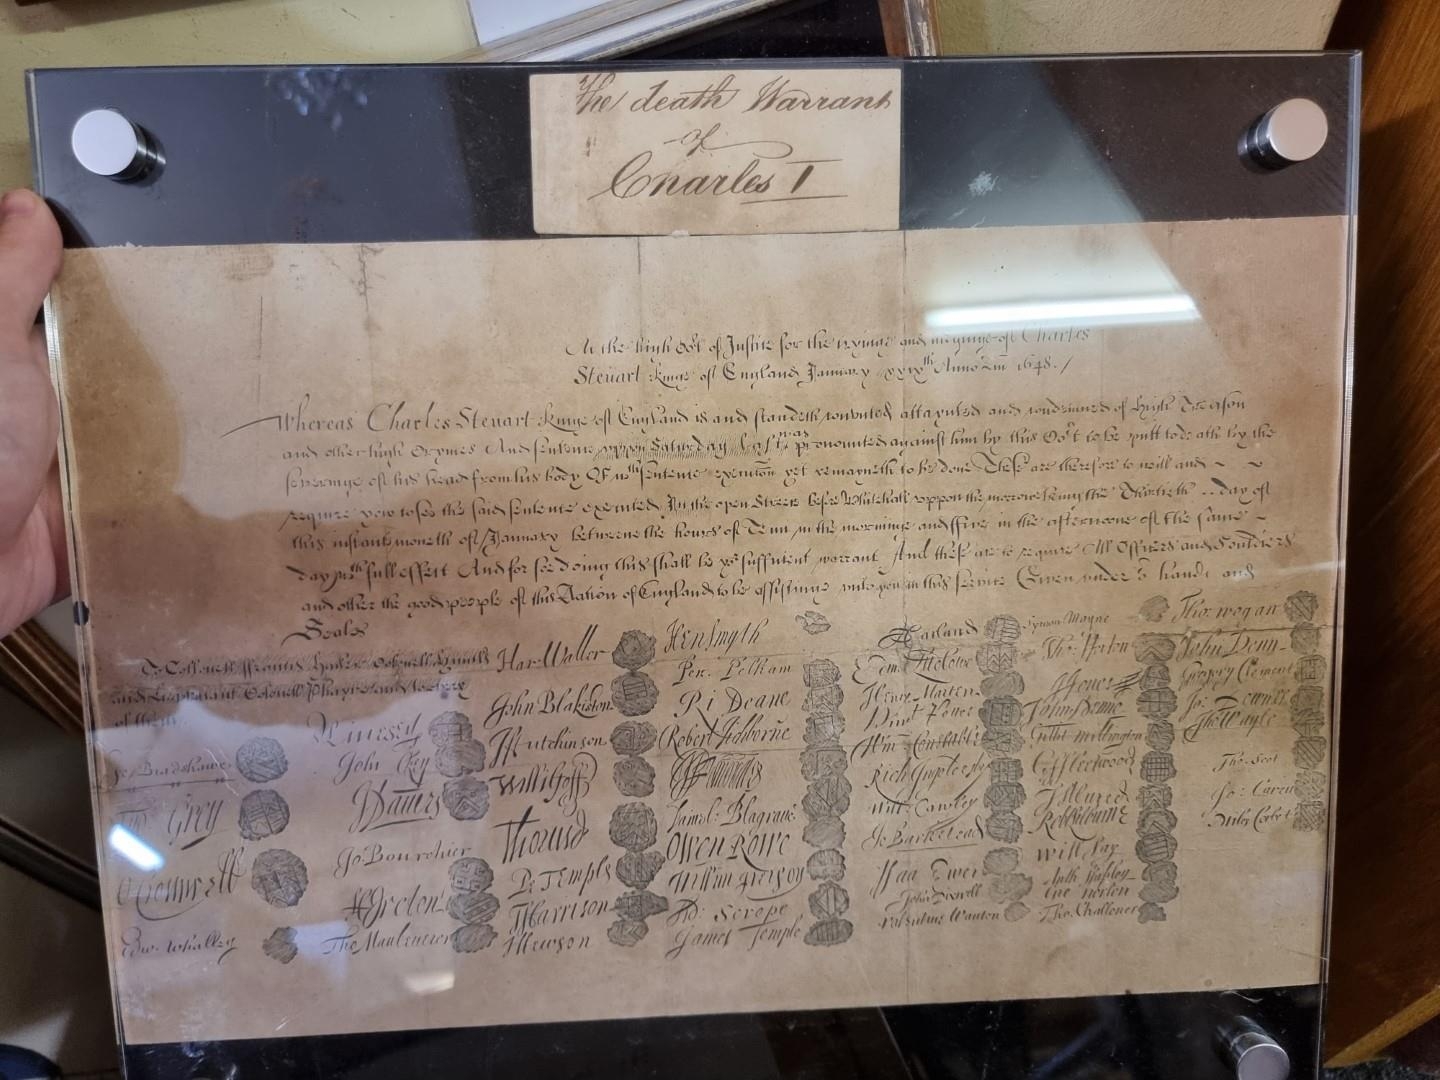 The death Warrant
of
Charles I
At the high Co^rt of Justice for the tryinge and iudginge of Charles
Steuart Kinge of England January xxix^th Anno Dm 1648./
Whereas Charles Steuart Kinge of England is and standeth convicted attaynted and condemned of high Treason
and other high Crymes And sentence uppon Saturday last was pronounced against him by this Co^rt to be putt to death by the
severinge of his head from his body Of w^ch sentence execucon yet remayneth to be done These are therefore to will and
require you to see the said sentence executed In the open Streete before Whitehall uppon the morrowe being the Thirtieth day of
this instant moneth of January betweene the houres of Tenn in the morninge and ffive in the afternoone of the same
day w^th full effect And for soe doing this shall be yo^r sufficient warrant And these are to require All Officers and Souldiers
and other the good people of this Nation of England to be assistinge unto you in this service Given under o^r hands and
Seales
To Collonell ffrancis Hacker Colonell Huncks
and Lieutenant Colonell Phayre and to every
of them
Jo Bradshawe
Tho Grey
O Cromwell
Edw Whalley
M Livesey
John Okey
J Danvers
Jo Bourchier
H Ireton
Tho Mauleverer
Har Waller
John Blakiston
J Hutchinson
Willi Goff
Tho Pride
P Temple
T Harrison
J Hewson
Hen Smyth
Per Pelham
Ri Deane
Robert Tichborne
H Edwardes
Daniel Blagrave
Owen Rowe
William Purefoy
Ad: Scrope
James Temple
A Garland
Edm Ludlowe
Henry Marten
Vinct Potter
Wm Constable
Rich Ingoldesby
Will Cawley
Jo Barkestead
Isaa Ewer
John Dixwell
Valentine Wauton
Symon Mayne
Tho Horton
J Jones
John Penne
Gilbt Millington
G Fleetwood
J Alured
Robt Lilburne
Will Say
Anth Stapley
Gre Norton
Tho Challoner
Tho: Wogan
John Venn
Gregory Clement
Jo: Downes
Tho Wayte
Tho: Scot
Jo: Carew
Miles Corbet